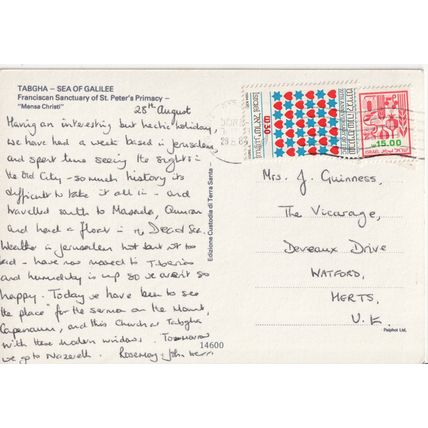 TABGHA – SEA OF GALILEE
Franciscan Sanctuary of St. Peter's Primacy –
"Mensa Christi"
28th August
Having an interesting but hectic holiday,
we have had a week based in Jerusalem
and spent time seeing the sights in
the Old City - so much history its
difficult to take it all in - and
travelled south to Masada, Qumran
and had a float in the Dead Sea.
Weather in Jerusalem hot but not too
bad - have now moved to Tiberias
and humidity is up so we aren't so
happy. Today we have been to see
the 'place' for the sermon on the Mount,
Capernaum, and this Church at Tabgha
with these modern windows. Tomorrow
we go to Nazareth. Rosemary + John
Edizione Custodia di Terra Santa
14600
15.00
Mrs. J. Guinness,
The Vicarage,
Deveraux Drive
WATFORD,
HERTS,
U.K.
Palphot Ltd.